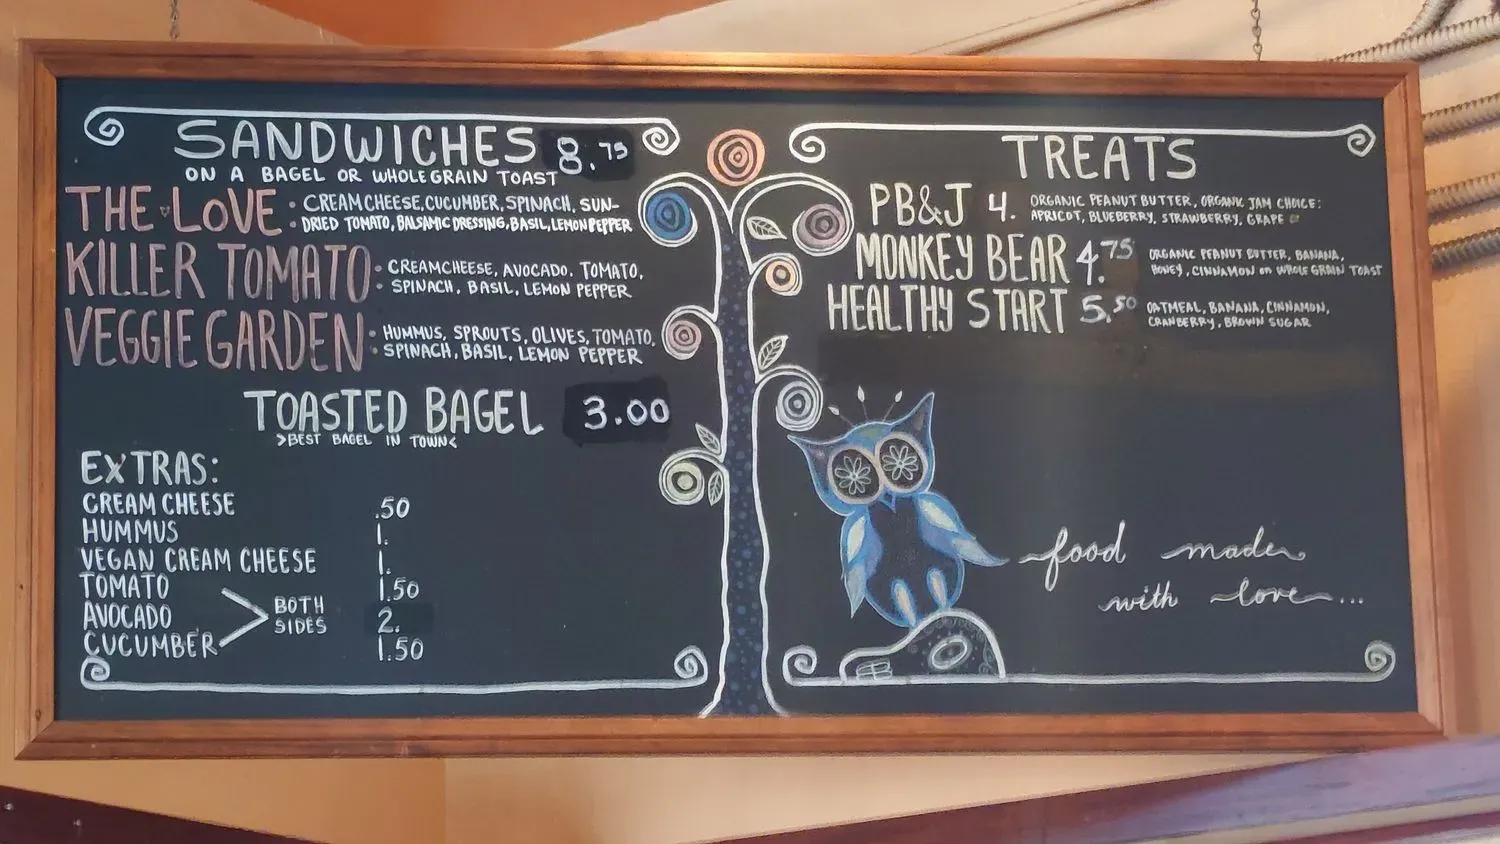 SANDWICHES 8.75
ON A BAGEL OR WHOLEGRAIN TOAST
THE LOVE • CREAM CHEESE, CUCUMBER, SPINACH, SUN-
• DRIED TOMATO, BALSAMIC DRESSING, BASIL, LEMON PEPPER
KILLER TOMATO • CREAMCHEESE, AVOCADO. TOMATO,
• SPINACH, BASIL, LEMON PEPPER
VEGGIE GARDEN • HUMMUS, SPROUTS, OLIVES, TOMATO,
• SPINACH, BASIL, LEMON PEPPER
TOASTED BAGEL 3.00
>BEST BAGEL IN TOWN<
EXTRAS:
CREAM CHEESE .50
HUMMUS 1.
VEGAN CREAM CHEESE 1.
TOMATO 1.50
AVOCADO 2.
CUCUMBER 1.50
BOTH
SIDES
TREATS
PB&J 4. ORGANIC PEANUT BUTTER, ORGANIC JAM CHOICE:
APRICOT, BLUEBERRY, STRAWBERRY, GRAPE
MONKEY BEAR 4.75 ORGANIC PEANUT BUTTER, BANANA,
HONEY, CINNAMON on WHOLE GRAIN TOAST
HEALTHY START 5.50 OATMEAL, BANANA, CINNAMON,
CRANBERRY, BROWN SUGAR
food made
with love...